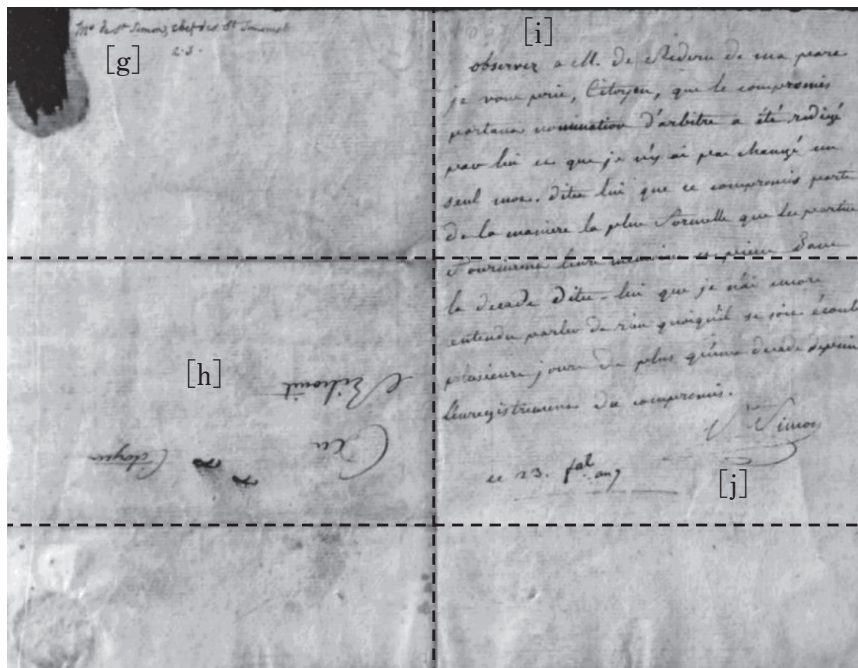 Mr de St Simon, chef des St Simoniens
L. S.
[g]
[i]
observez a M. de Rédern de ma part
je vous prie, Citoyen, que le compromis
portant nomination d'arbitre a été redigé
par lui et que je n'y ai pas changé un
seul mot. dites lui que ce compromis porte
de la manière la plus formelle que les parties
fourniront leurs mémoires et pièces dans
la decade dites-lui que je n'ai encore
entendu parler de rien quoiqu'il se soit écoulé
plusieurs jours de plus qu'une decade depuis
l'enregistrement du compromis.
St Simon
ce 23. fal. an 7
[j]
[h]
Au
Citoyen